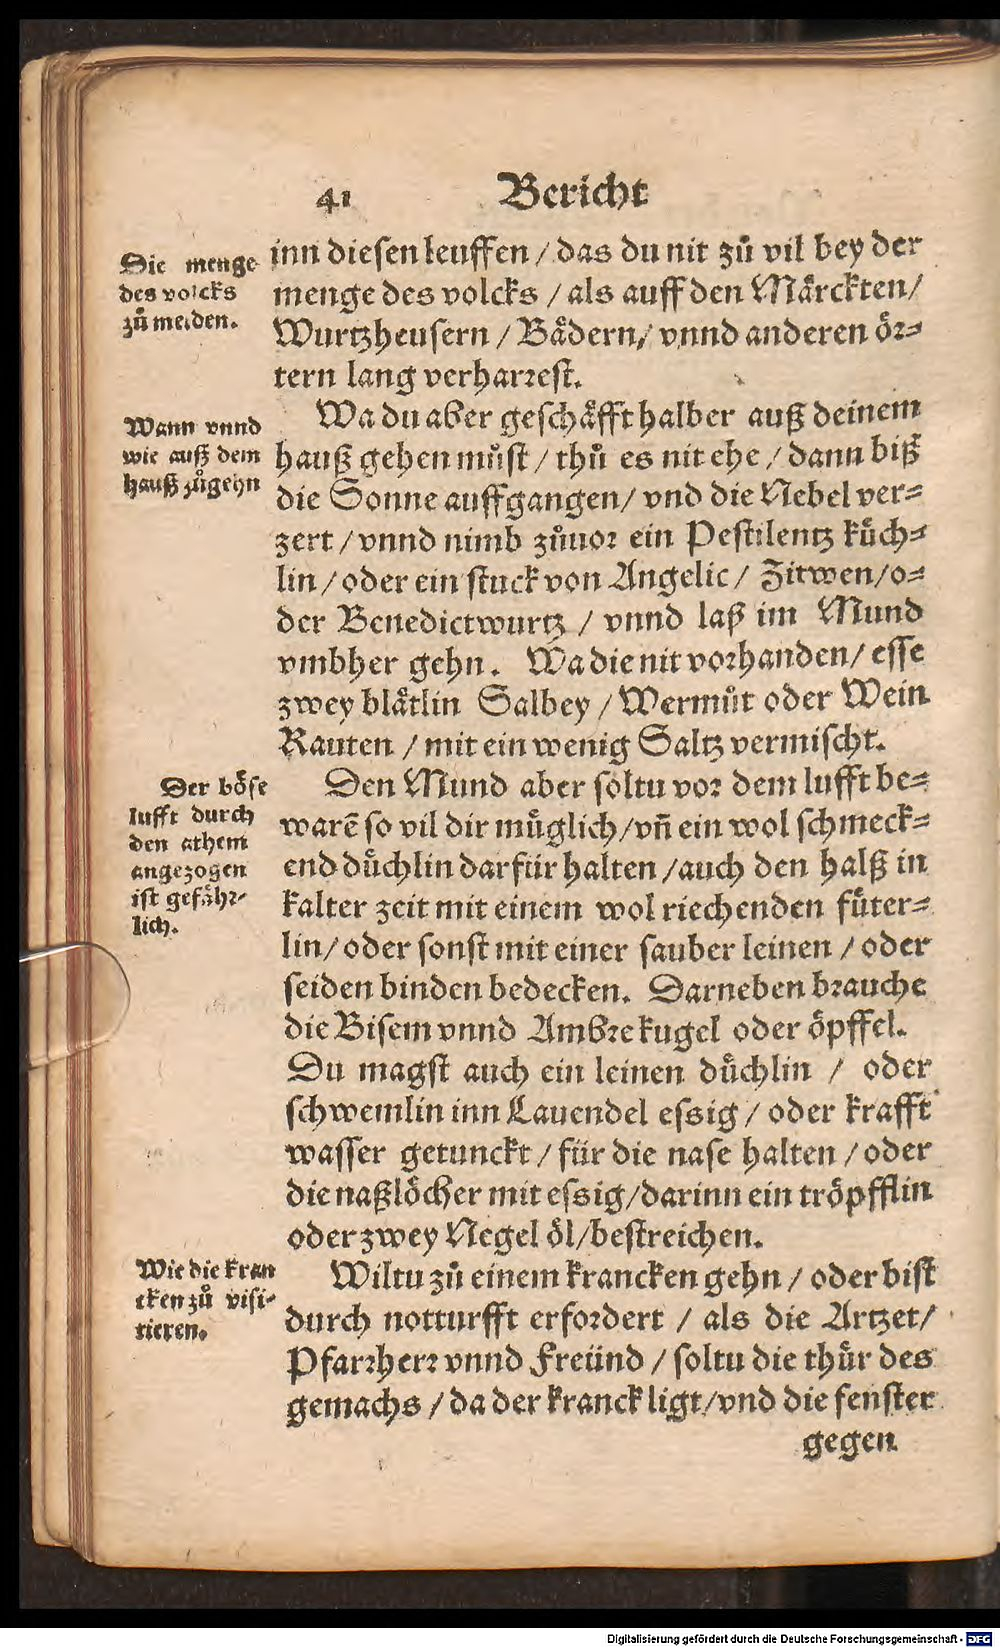 41 Bericht
Die menge
des volcks
zů meiden.
inn dieſen leuffen / das du nit zů vil bey der
menge des volcks / als auff den Maͤrckten/
Wurtzheuſern / Baͤdern/ vnnd anderen oͤꝛ⸗
tern lang verharꝛeſt.
Wann vnnd
wie auß dem
hauß zůgehn
Wa du aber geſchaͤfft halber auß deinem
hauß gehen můſt / thů es nit ehe / dann biß
die Sonne auffgangen/ vnd die Nebel ver⸗
zert / vnnd nimb zůuoꝛ ein Peſtilentz kuͤch⸗
lin / oder ein ſtuck von Angelic / Zitwen/o⸗
der Benedictwurtz / vnnd laß im Mund
vmbher gehn. Wa die nit voꝛhanden/ eſſe
zwey blaͤtlin Salbey / Wermůt oder Wein
Rauten / mit ein wenig Saltz vermiſcht.
Der boͤſe
lufft durch
den athem
angezogen
iſt gefaͤhꝛ⸗
lich.
Den Mund aber ſoltu voꝛ dem lufft be⸗
warē ſo vil dir muͤglich/vñ ein wol ſchmeck⸗
end duͤchlin darfür halten /auch den halß in
kalter zeit mit einem wol riechenden fuͤter⸗
lin/ oder ſonſt mit einer ſauber leinen / oder
ſeiden binden bedecken. Darneben bꝛauche
die Biſem vnnd Ambꝛe kugel oder oͤpffel.
Du magſt auch ein leinen duͤchlin / oder
ſchwemlin inn Lauendel eſsig / oder krafft
waſſer getunckt / für die naſe halten / oder
die naßloͤcher mit eſsig/darinn ein troͤpfflin
oder zwey Negel oͤl/beſtreichen.
Wie die kran
cken zů viſi⸗
tieren.
Wiltu zů einem krancken gehn / oder biſt
durch notturfft erfoꝛdert / als die Artzet/
Pfarꝛherꝛ vnnd Freünd / ſoltu die thuͤr des
gemachs / da der kranck ligt/vnd die fenſter
gegen
Digitalisierung gefördert durch die Deutsche Forschungsgemeinschaft - DFG